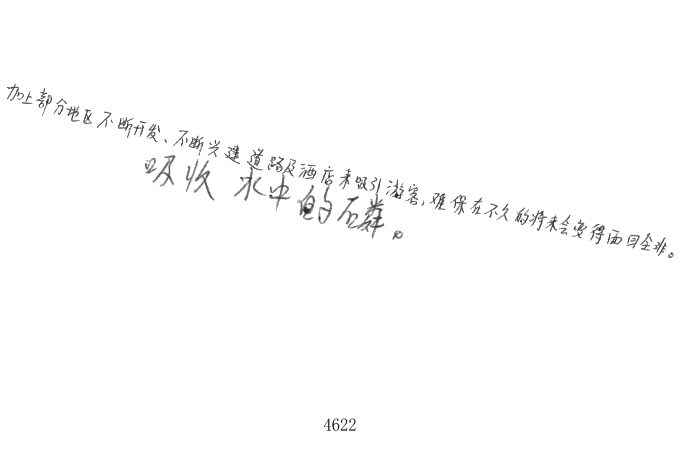 加上部分地区不断开发、不断兴建道路及酒店来吸引游客,难保在不久的将来会变得面目全非。
吸收水中的磷。
4622